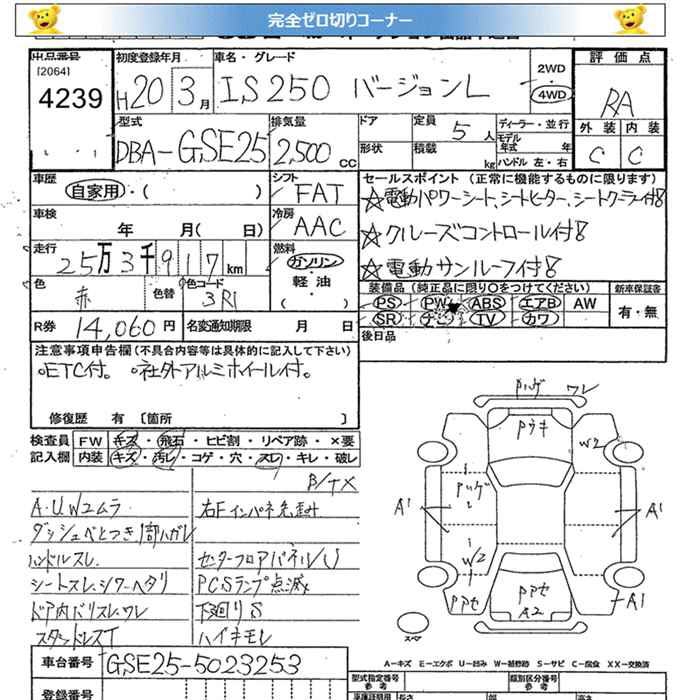 完全ゼロ切りコーナー
出品番号 初度登録年月 車名・グレード 2WD 評価点
[2064]
4239 H20 3月 IS250 バージョンL 4WD RA
型式 排気量 ドア 定員 5人 ディーラー・並行 外装 内装
DBA-GSE25 2,500cc 形状 積載 kg モデル年式 年 ハンドル 左・右 C C
車歴 自家用・( ) シフト FAT セールスポイント (正常に機能するものに限ります)
☆電動パワーシート、シートヒーター、シートクーラー付き
車検 年 月( 日) 冷房 AAC ☆クルーズコントロール付き
走行 25万3千917km 燃料 ガソリン・軽油・( ) ☆電動サンルーフ付き
色 赤 色替 色コード 3R1 装備品(純正品に限り○をつけてください) 新車保証書
PS PW ABS エアB AW 有・無
SR ナビ TV カワ
R券 14,060円 名変通知期限 月 日 後日品
注意事項申告欄(不具合内容等は具体的に記入して下さい)
○ETC付。 ○社外アルミホイール付。
修復歴 有 [箇所 ]
検査員 FW キズ・飛石・ヒビ割・リペア跡・×要
記入欄 内装 キズ・汚レ・コゲ・穴・スレ・キレ・破レ
B/TX
A.U.Wユムラ 右Fインパネ先歪み
ダッシュベとつき1部ハガレ
ハンドルスレ センターフロアパネルU
シートスレ、シワ・ヘタリ PCSランプ点滅
ドア内バリスレ、ワレ 下廻りS
スタッドレスT ハイキモレ
Pハゲ ワレ
Pウキ
W2
Pハゲ
A1 A1
W2
Pアセ Pアセ A2 A1
スペア
A－キズ E－エクボ U－凹み W－補修跡 S－サビ C－腐食 XX－交換済
車台番号 GSE25-5023253 型式指定番号 参考 類別区分番号 参考
登録番号 長さ 幅 高さ